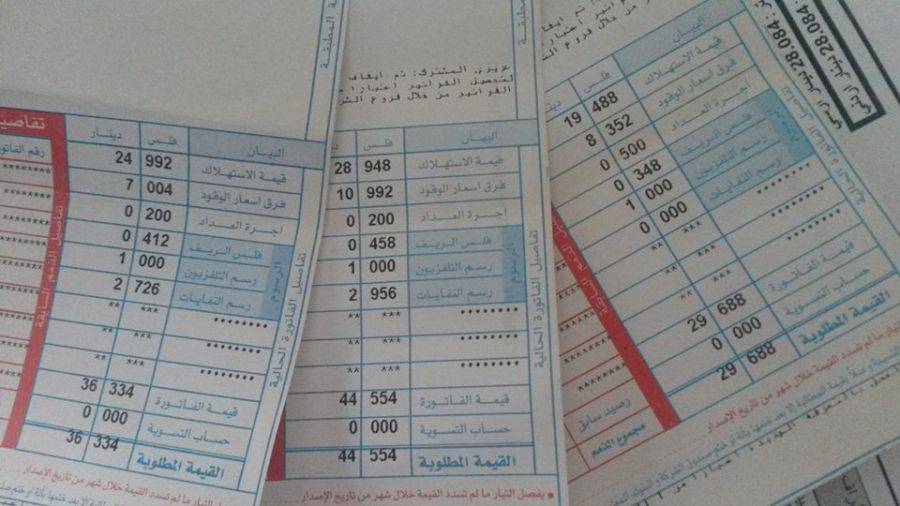 المطبقة
البيان فلس دينار
قيمة الاستهلاك 992 24
فرق اسعار الوقود 004 7
اجرة العداد 200 0
فلس الريف 412 0
رسم التلفزيون 000 1
رسم النفايات 726 2
******** *** **
******** *** **
******** *** **
قيمة الفاتورة 334 36
حساب التسوية 000 0
القيمة المطلوبة 334 36
الرسوم
تفاصيل الفاتورة الحالية
تفاصيل الذمم السابقة
تفاصيل
رقم الفاتورة
المطبقة
عزيزي المشترك: تم ايقاف
لتحصيل الفواتير اعتبارا
الفواتير من خلال فروع
البيان فلس
قيمة الاستهلاك 948 28
فرق اسعار الوقود 992 10
اجرة العداد 200 0
فلس الريف 458 0
رسم التلفزيون 000 1
رسم النفايات 956 2
******** *** **
******** *** **
******** *** **
قيمة الفاتورة 554 44
حساب التسوية 000 0
القيمة المطلوبة 554 44
الرسوم
تفاصيل الفاتورة الحالية
يفصل التيار ما لم تسدد القيمة خلال شهر من تاريخ الإصدار
28.084
28.084
البيان فلس
قيمة الاستهلاك 488 19
فرق اسعار الوقود 352 8
اجرة العداد 500 0
فلس الريف 348 0
رسم التلفزيون 000 1
رسم النفايات 000 0
******** *** **
******** *** **
قيمة الفاتورة 688 29
حساب التسوية 000 0
القيمة المطلوبة 688 29
تفاصيل الفاتورة الحالية
رصيد سابق
مجموع الذمم
ما لم تسدد القيمة خلال شهر من تاريخ الإصدار